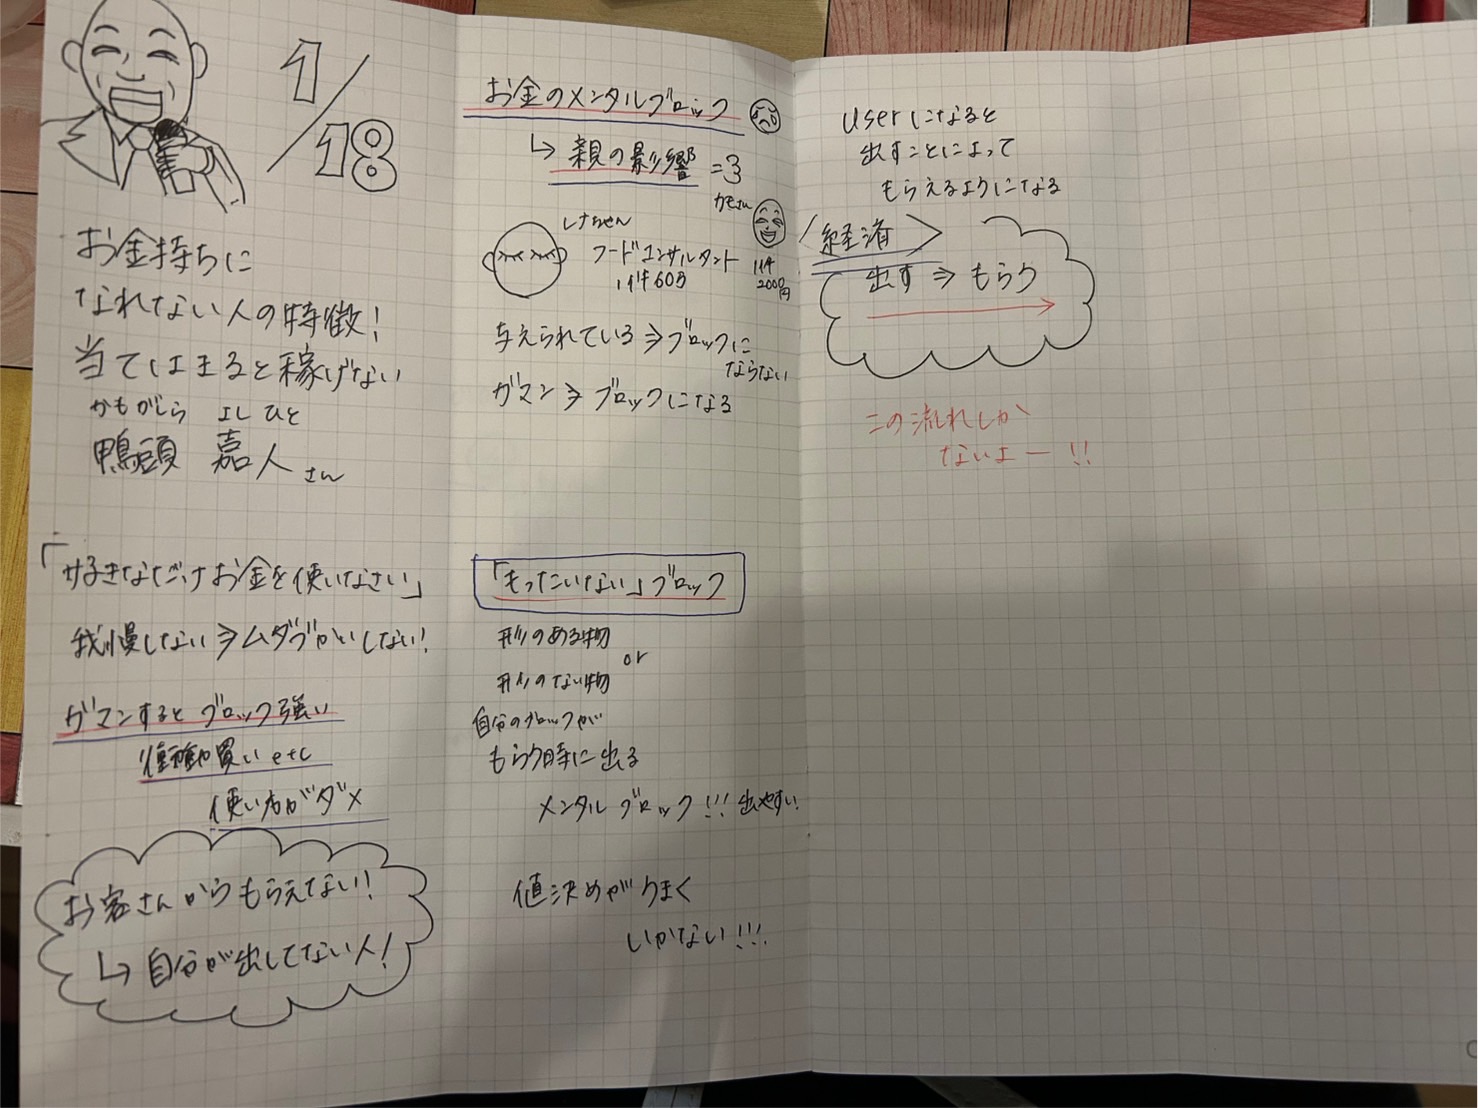 1/18
お金持ちに
なれない人の特徴!
当てはまると稼げない
かもがしら よしひと
鴨頭 嘉人さん
「好きなだけお金を使いなさい」
我慢しない⇒ムダづかいしない!
ガマンするとブロック強い
衝動買い etc
使い方がダメ
お客さんからもらえない!
↳自分が出してない人!
お金のメンタルブロック
↳親の影響
かもさん
しなちゃん
フードコンサルタント
1件60万
1件
2000円
与えられている⇒ブロックに
ならない
ガマン⇒ブロックになる
「もったいない」ブロック
形のある物
or
形のない物
自分のブロックが
もらう時に出る
メンタルブロック!!! 出やすい
値決めがうまく
いかない!!!
userになると
出すことによって
もらえるようになる
〈経済〉
出す⇒もらう
この流れしか
ないよー!!